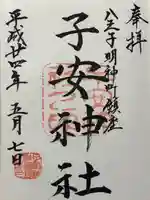 奉拝
八王子明神町鎮座
子安神社
平成廿四年五月七日